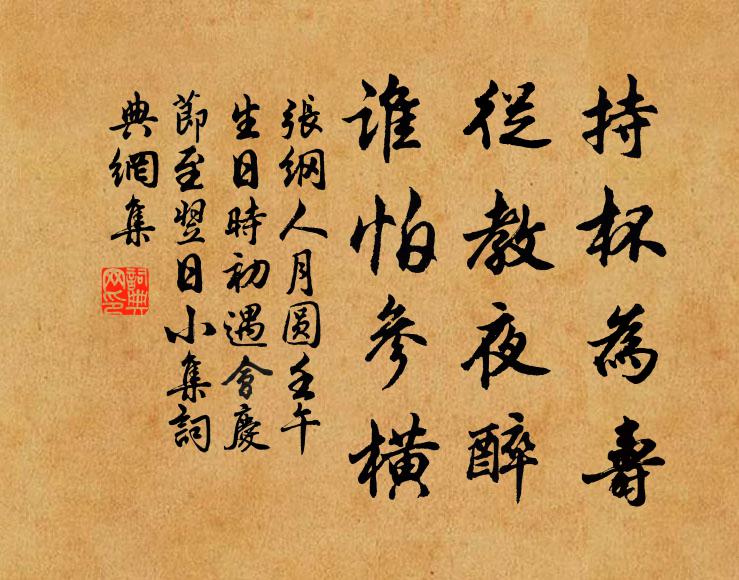 持杯為壽
從教夜醉
誰怕參橫
張綱人月圆壬午
生日時初遇會慶
節至翌日小集詞
典網集
詞典網印